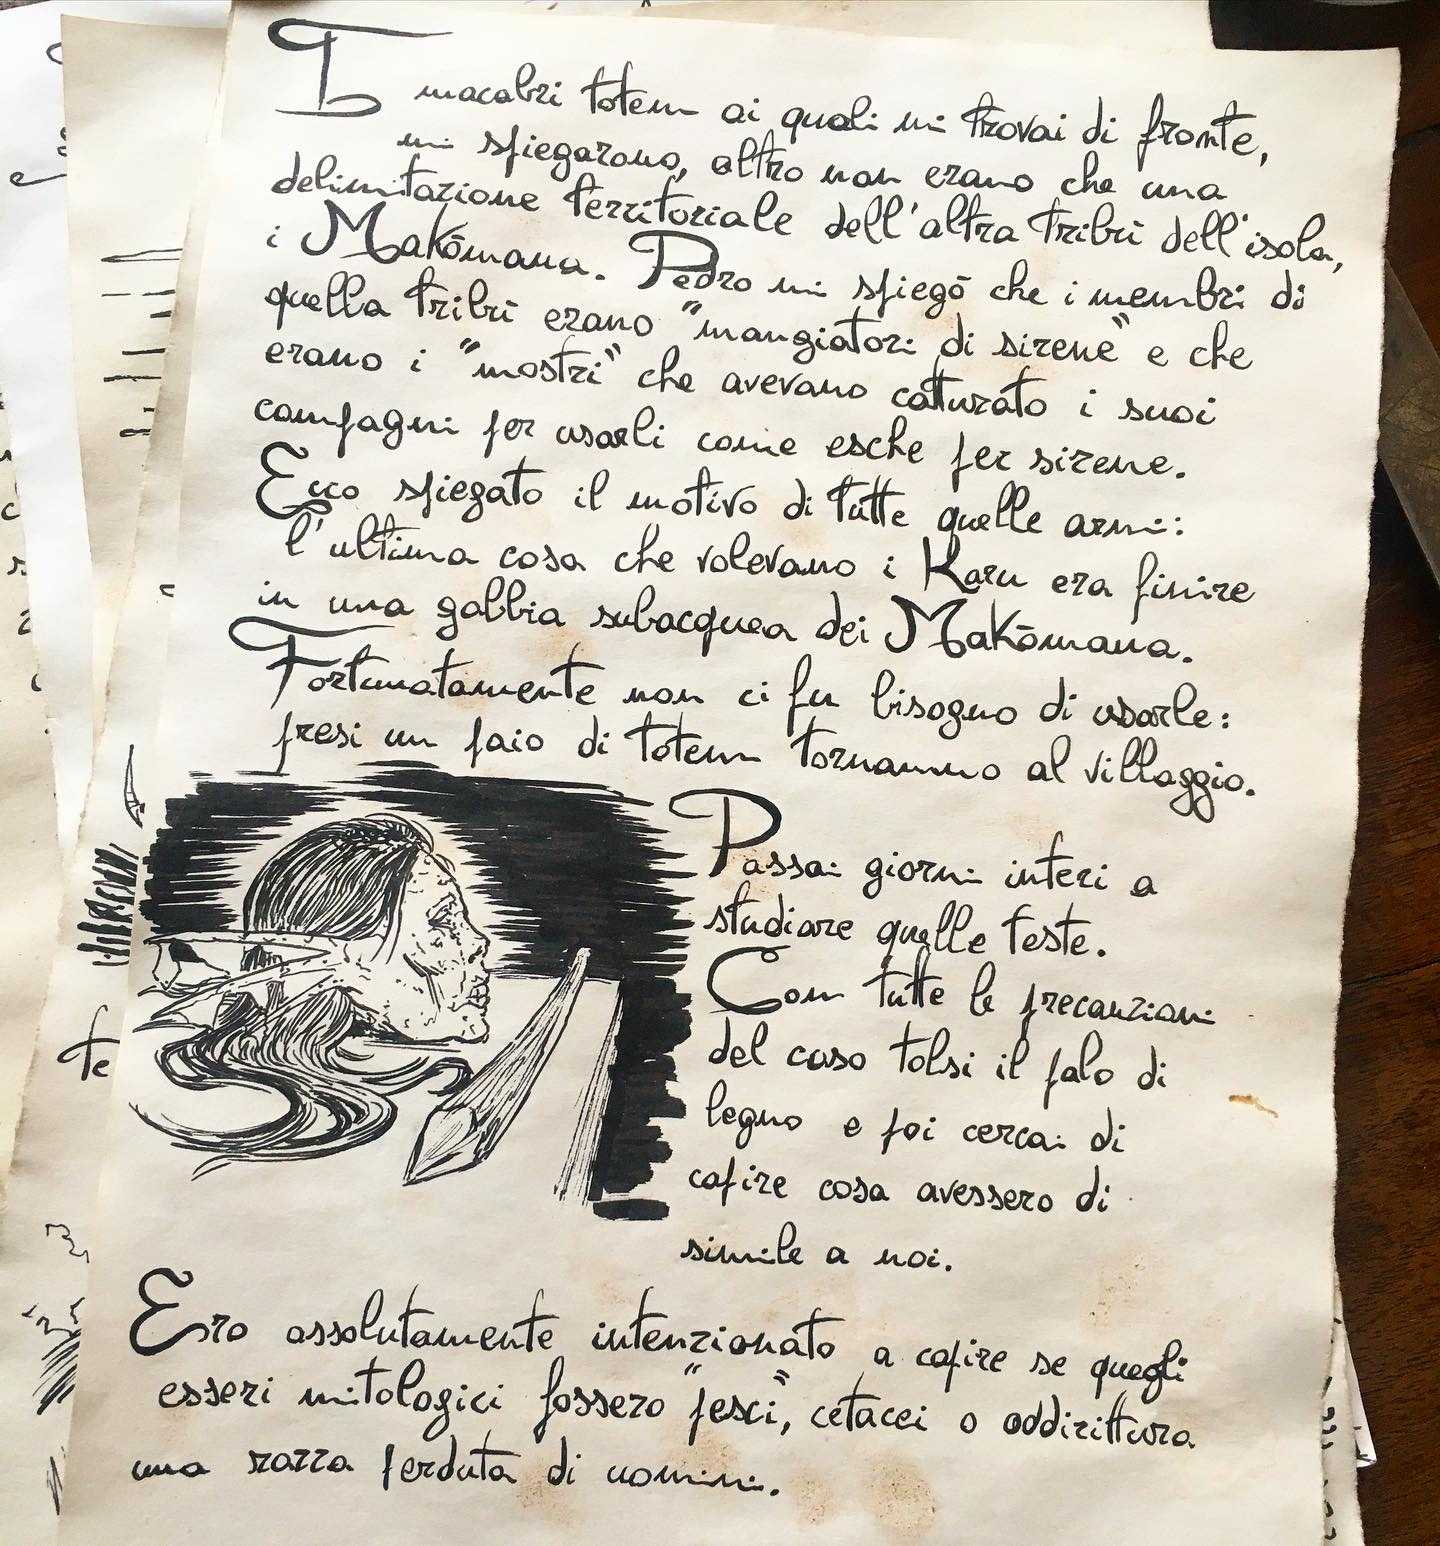 I macabri totem ai quali mi trovai di fronte,
mi spiegarono, altro non erano che una
delimitazione territoriale dell'altra tribù dell'isola,
i Makōmana. Pedro mi spiegò che i membri di
quella tribù erano "mangiatori di sirene" e che
erano i "mostri" che avevano catturato i suoi
compagni per usarli come esche per sirene.
Ecco spiegato il motivo di tutte quelle armi:
l'ultima cosa che volevano i Karu era finire
in una gabbia subacquea dei Makōmana.
Fortunatamente non ci fu bisogno di usarle:
presi un paio di totem tornammo al villaggio.
Passai giorni interi a
studiare quelle teste.
Con tutte le precauzioni
del caso tolsi il palo di
legno e poi cercai di
capire cosa avessero di
simile a noi.
Ero assolutamente intenzionato a capire se quegli
esseri mitologici fossero "pesci", cetacei o addirittura
una razza perduta di uomini.
te